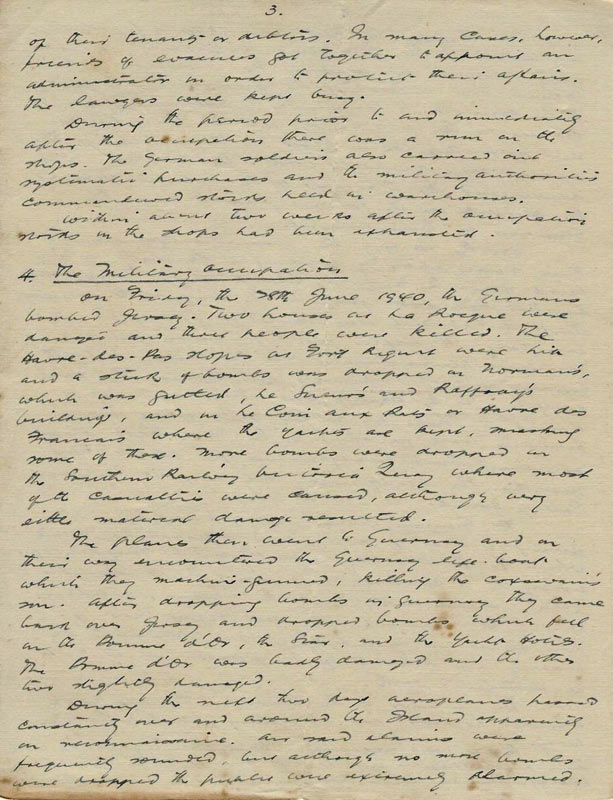 3.
of their tenants or debtors. In many cases, however,
friends of evacuees got together to appoint an
administrator in order to protect their affairs.
The lawyers were kept busy.
During the period prior to and immediately
after the occupation there was a run on the
shops. The German soldiers also carried out
systematic purchases and the military authorities
commandeered stocks held in warehouses.
Within about two weeks after the occupation
stocks in the shops had been exhausted.
4. The Military Occupation
On Friday, the 28th June 1940, the Germans
bombed Jersey. Two houses at La Rocque were
damaged and three people were killed. The
Havre-des-Pas slopes at Fort Regent were hit
and a stick of bombs was dropped on Norman's,
which was gutted, Le Sueur's and Raffray's
buildings, and in le Coin aux Rats or Havre des
Francais where the yachts are kept, smashing
some of these. More bombs were dropped on
the Southern Railway Victoria Quay where most
of the casualties were caused, although very
little material damage resulted.
The planes then went to Guernsey and on
their way encountered the Guernsey life-boat
which they machine-gunned, killing the coxswain's
son. After dropping bombs in Guernsey they came
back over Jersey and dropped bombs which fell
on the Pomme d'Or, the Star, and the Yacht Hotels.
The Pomme d'Or was badly damaged and the other
two slightly damaged.
During the next two days aeroplanes passed
constantly over and around the Island apparently
on reconnaissance. Air raid alarms were
frequently sounded, but although no more bombs
were dropped the public were extremely alarmed.